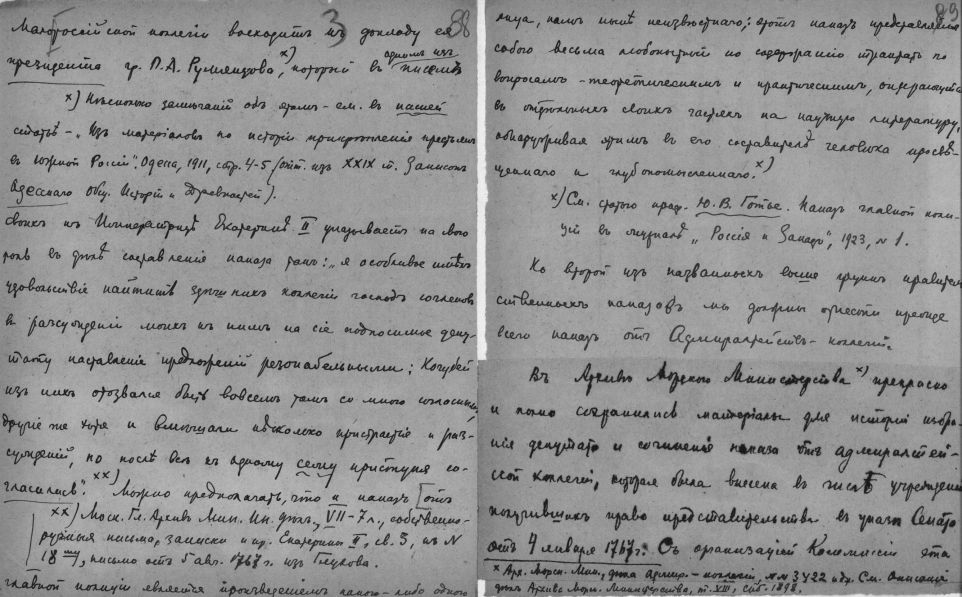 3 88
Малороссійской коллегіи восходитъ къ докладу ея
президента гр. П. А. Румянцова,ˣ⁾ который въ одномъ изъ писемъ
х) Нѣсколько замѣчаній объ этомъ – см. въ нашей
статьѣ – „Изъ матеріаловъ по исторіи прикрѣпленія крестьянъ
въ Южной Россіи". Одесса, 1911, стр. 4-5 (отт. изъ XXIX т. Записокъ
Одесскаго Общ. Исторіи и Древностей).
своихъ къ Императрицѣ Екатеринѣ II указываетъ на свою
роль въ дѣлѣ составленія наказа такъ: „я особливое имѣлъ
удовольствіе найтить здѣшнихъ коллегіи господъ членовъ
въ разсужденіи моихъ къ нимъ на сіе подносимое депу-
тату наставленіе предложеній резонабельными; Кочубей
изъ нихъ отозвался быть вовсемъ томъ со мною согласнымъ,
другіе же хотя и вмѣщали нѣсколько пристрастіе и раз-
сужденій, но послѣ всѣ къ одному сему приступя со-
гласились".ˣˣ⁾ Можно предполагать, что и наказъ [отъ
хх) Моск. Гл. Архивъ Мин. Ин. дѣлъ, VII-7 л., собственно-
ручныя письма, записки и пр. Екатерины II, св. 3, къ N
18ᵐʸ, письмо отъ 5 авг. 1767 г. изъ Глухова.
главной полиціи является произведеніемъ какого-либо одного
89
лица, намъ нынѣ неизвѣстнаго; этотъ наказъ представляетъ
собою весьма любопытный по содержанію трактатъ по
вопросамъ – теоретическимъ и практическимъ, опирающійся
въ отдѣльныхъ своихъ частяхъ на научную литературу,
обнаруживая этимъ въ его составителѣ человѣка просвѣ-
щеннаго и глубокомысленнаго.ˣ⁾
х) См. статью проф. Ю. В. Готье. Наказъ главной поли-
ціи въ журналѣ „Россія и Западъ", 1923, N 1.
Ко второй изъ названныхъ выше группъ правитель-
ственныхъ наказовъ мы должны отнести прежде
всего наказъ отъ Адмиралтействъ-коллегіи.
Въ Архивѣ Морского Министерстваˣ⁾ прекрасно
и полно сохранились матеріалы для исторіи избра-
нія депутата и сочиненія наказа отъ адмиралтей-
ской коллегіи, которая была внесена въ число учрежденій
получившихъ право представительства въ указѣ Сената
отъ 4 января 1767 г. Съ организаціей Комиссіи эта
х Арх. Морск. Мин., дѣла Адмир. – коллегіи, NN 3422 и др. См. Описаніе
дѣлъ Архива Морск. Министерства, т. VIII, Спб. 1898.